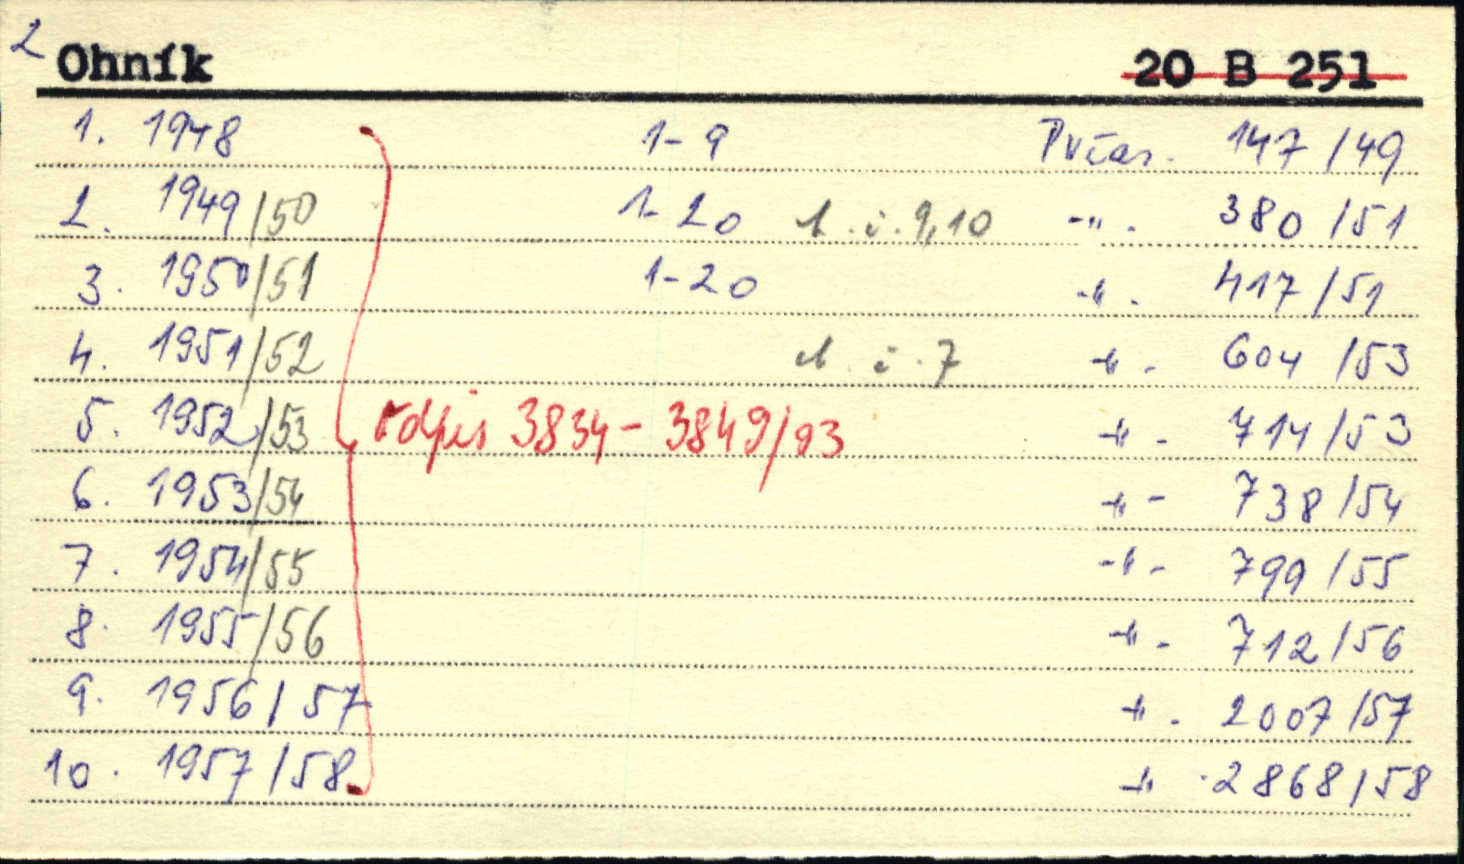 2 Ohník 20 B 251
1. 1948 1-9 Pvčas. 147/49
2. 1949/50 1-20 ch. č. 9,10 -"- 380/51
3. 1950/51 1-20 -"- 417/51
4. 1951/52 ch. č. 7 -"- 604/53
5. 1952/53 odpis 3834-3849/93 -"- 714/53
6. 1953/54 -"- 738/54
7. 1954/55 -"- 799/55
8. 1955/56 -"- 712/56
9. 1956/57 -"- 2007/57
10. 1957/58 -"- 2868/58